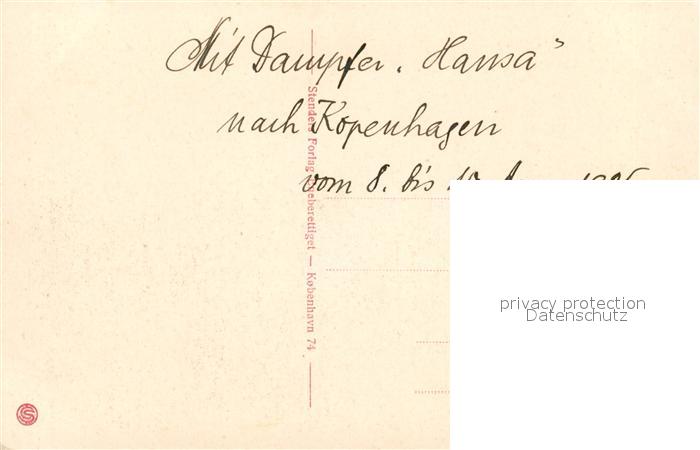 Mit Dampfer „Hansa“
nach Kopenhagen
vom 8. bis
Stenders Forlag Eneberettiget — København 74
S
privacy protection
Datenschutz